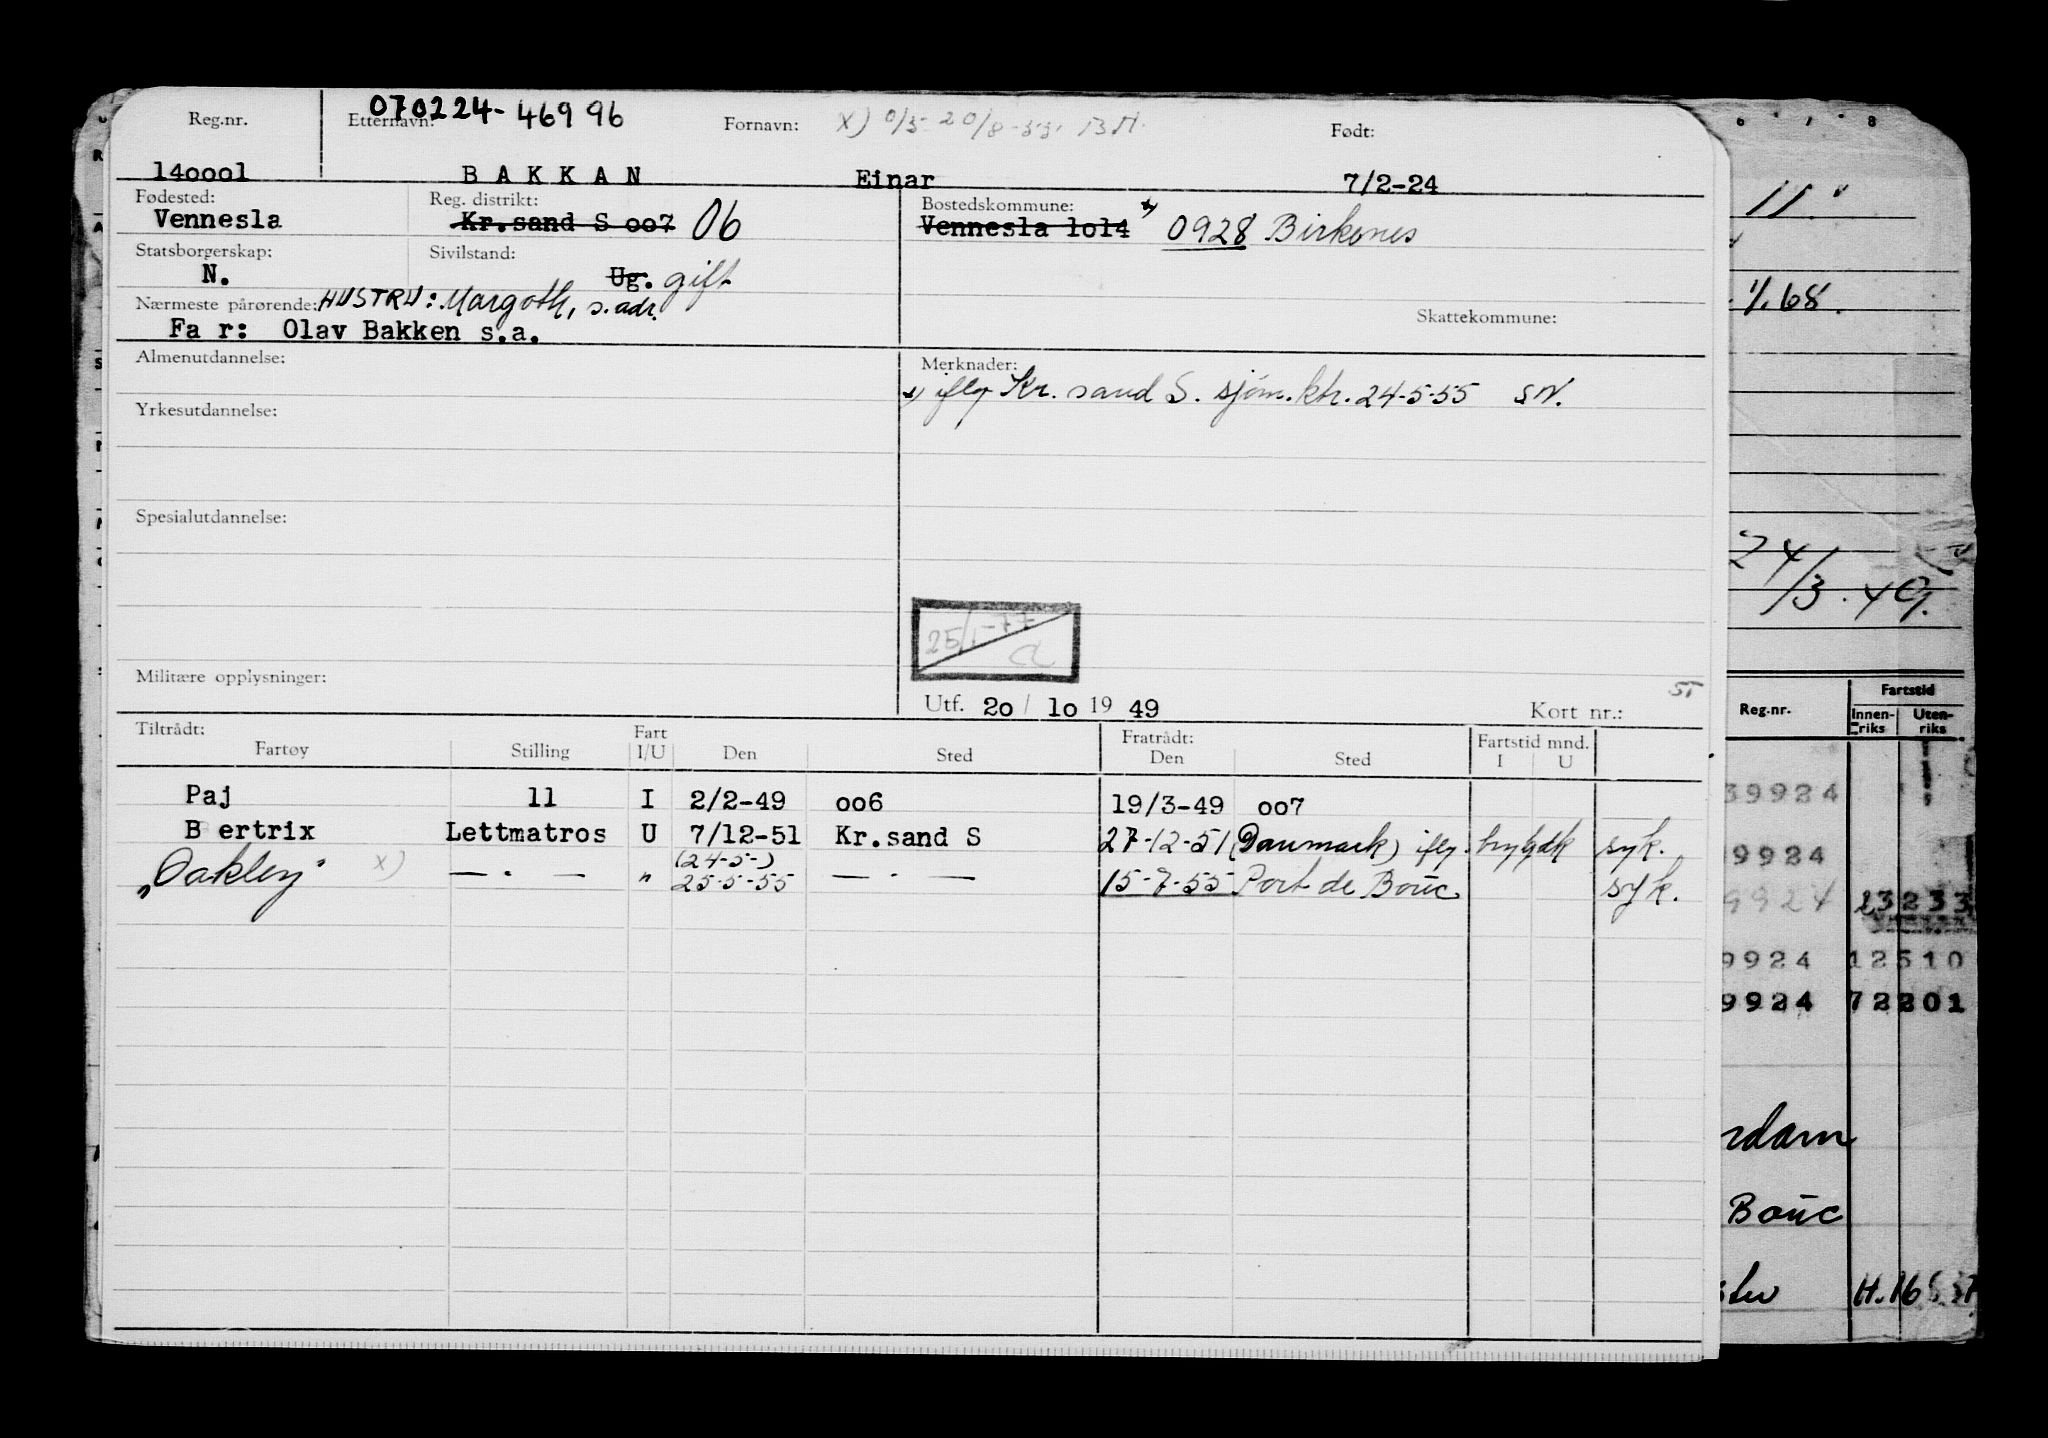 070224-46996
Reg.nr. Etternavn: Fornavn: X) 0/5 20/8-53. Født:
140001 BAKKAN Einar 7/2-24
Fødested: Reg. distrikt: Bostedskommune:
Vennesla Kr.sand S 007 06 Vennesla 1014 x) 0928 Birkenes
Statsborgerskap: Sivilstand:
N. Ug. gift
Nærmeste pårørende: HUSTRU: Margoth, s. adr. Skattekommune:
Fa r: Olav Bakken s.a.
Almenutdannelse: Merknader:
x) iflg Kr. sand S. sjøm.ktr. 24-5-55 SN.
Yrkesutdannelse:
Spesialutdannelse:
25/1-77
CL
Militære opplysninger:
Utf. 20 / 10 19 49 Kort nr.:
Tiltrådt: Fart Fratrådt: Fartstid mnd.
Fartøy Stilling I/U Den Sted Den Sted I U
Paj 11 I 2/2-49 006 19/3-49 007
B ertrix Lettmatros U 7/12-51 Kr.sand S 27-12-51 (Danmark) iflg. syk.
(24-5-)
"Oakley" x) — . — " 25-5-55 — . — 15-7-55 Port de Bouc syk.
6 . 7 . 8
11.
1/1.68.
24/3.49.
Reg.nr. Fartstid
Innenriks Utenriks
39924
9924
9924 23233
9924 12510
9924 72201
rdam
Bouc